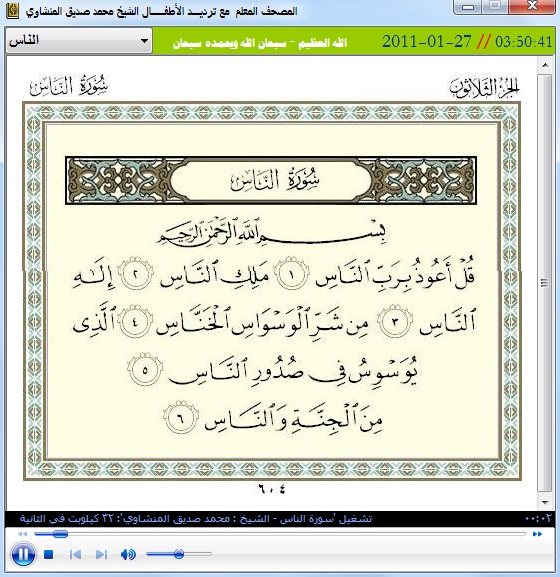 المصحف المعلم مع ترديد الأطفال الشيخ محمد صديق المنشاوي
الناس
الله العظيم - سبحان الله وبحمده سبحان
2011-01-27 // 03:50:41
الجزء الثلاثون
سُورَةُ النَّاسِ
سُورَةُ النَّاسِ
بِسْمِ ٱللَّهِ ٱلرَّحْمَٰنِ ٱلرَّحِيمِ
قُلْ أَعُوذُ بِرَبِّ ٱلنَّاسِ ١ مَلِكِ ٱلنَّاسِ ٢ إِلَٰهِ
ٱلنَّاسِ ٣ مِن شَرِّ ٱلْوَسْوَاسِ ٱلْخَنَّاسِ ٤ ٱلَّذِى
يُوَسْوِسُ فِى صُدُورِ ٱلنَّاسِ ٥
مِنَ ٱلْجِنَّةِ وَٱلنَّاسِ ٦
٦٠٤
تشغيل 'سورة الناس - الشيخ : محمد صديق المنشاوي': ٣٢ كيلوبت في الثانية
٠٠:٠٢